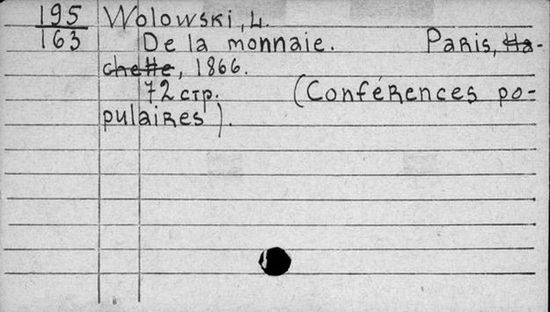 195 Wolowski, L.
163 De la monnaie. Paris, Ha-
chette, 1866.
72 стр. (Conférences po-
pulaires).